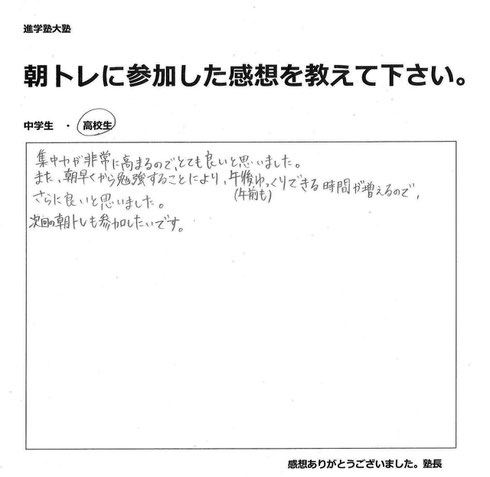 進学塾大塾
朝トレに参加した感想を教えて下さい。
中学生 ・ 高校生
集中力が非常に高まるので、とても良いと思いました。
また、朝早くから勉強することにより、午後ゆっくりできる時間が増えるので、
(午前も)
さらに良いと思いました。
次回の朝トレも参加したいです。
感想ありがとうございました。塾長